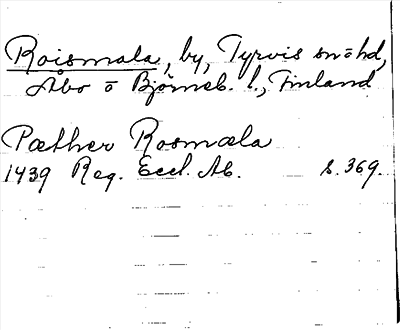 Roismala, by, Tyrvis sn o hd,
Åbo o Björneb. l., Finland
Pæther Rosmæla
1439 Reg. Eccl. Ab. s. 369.